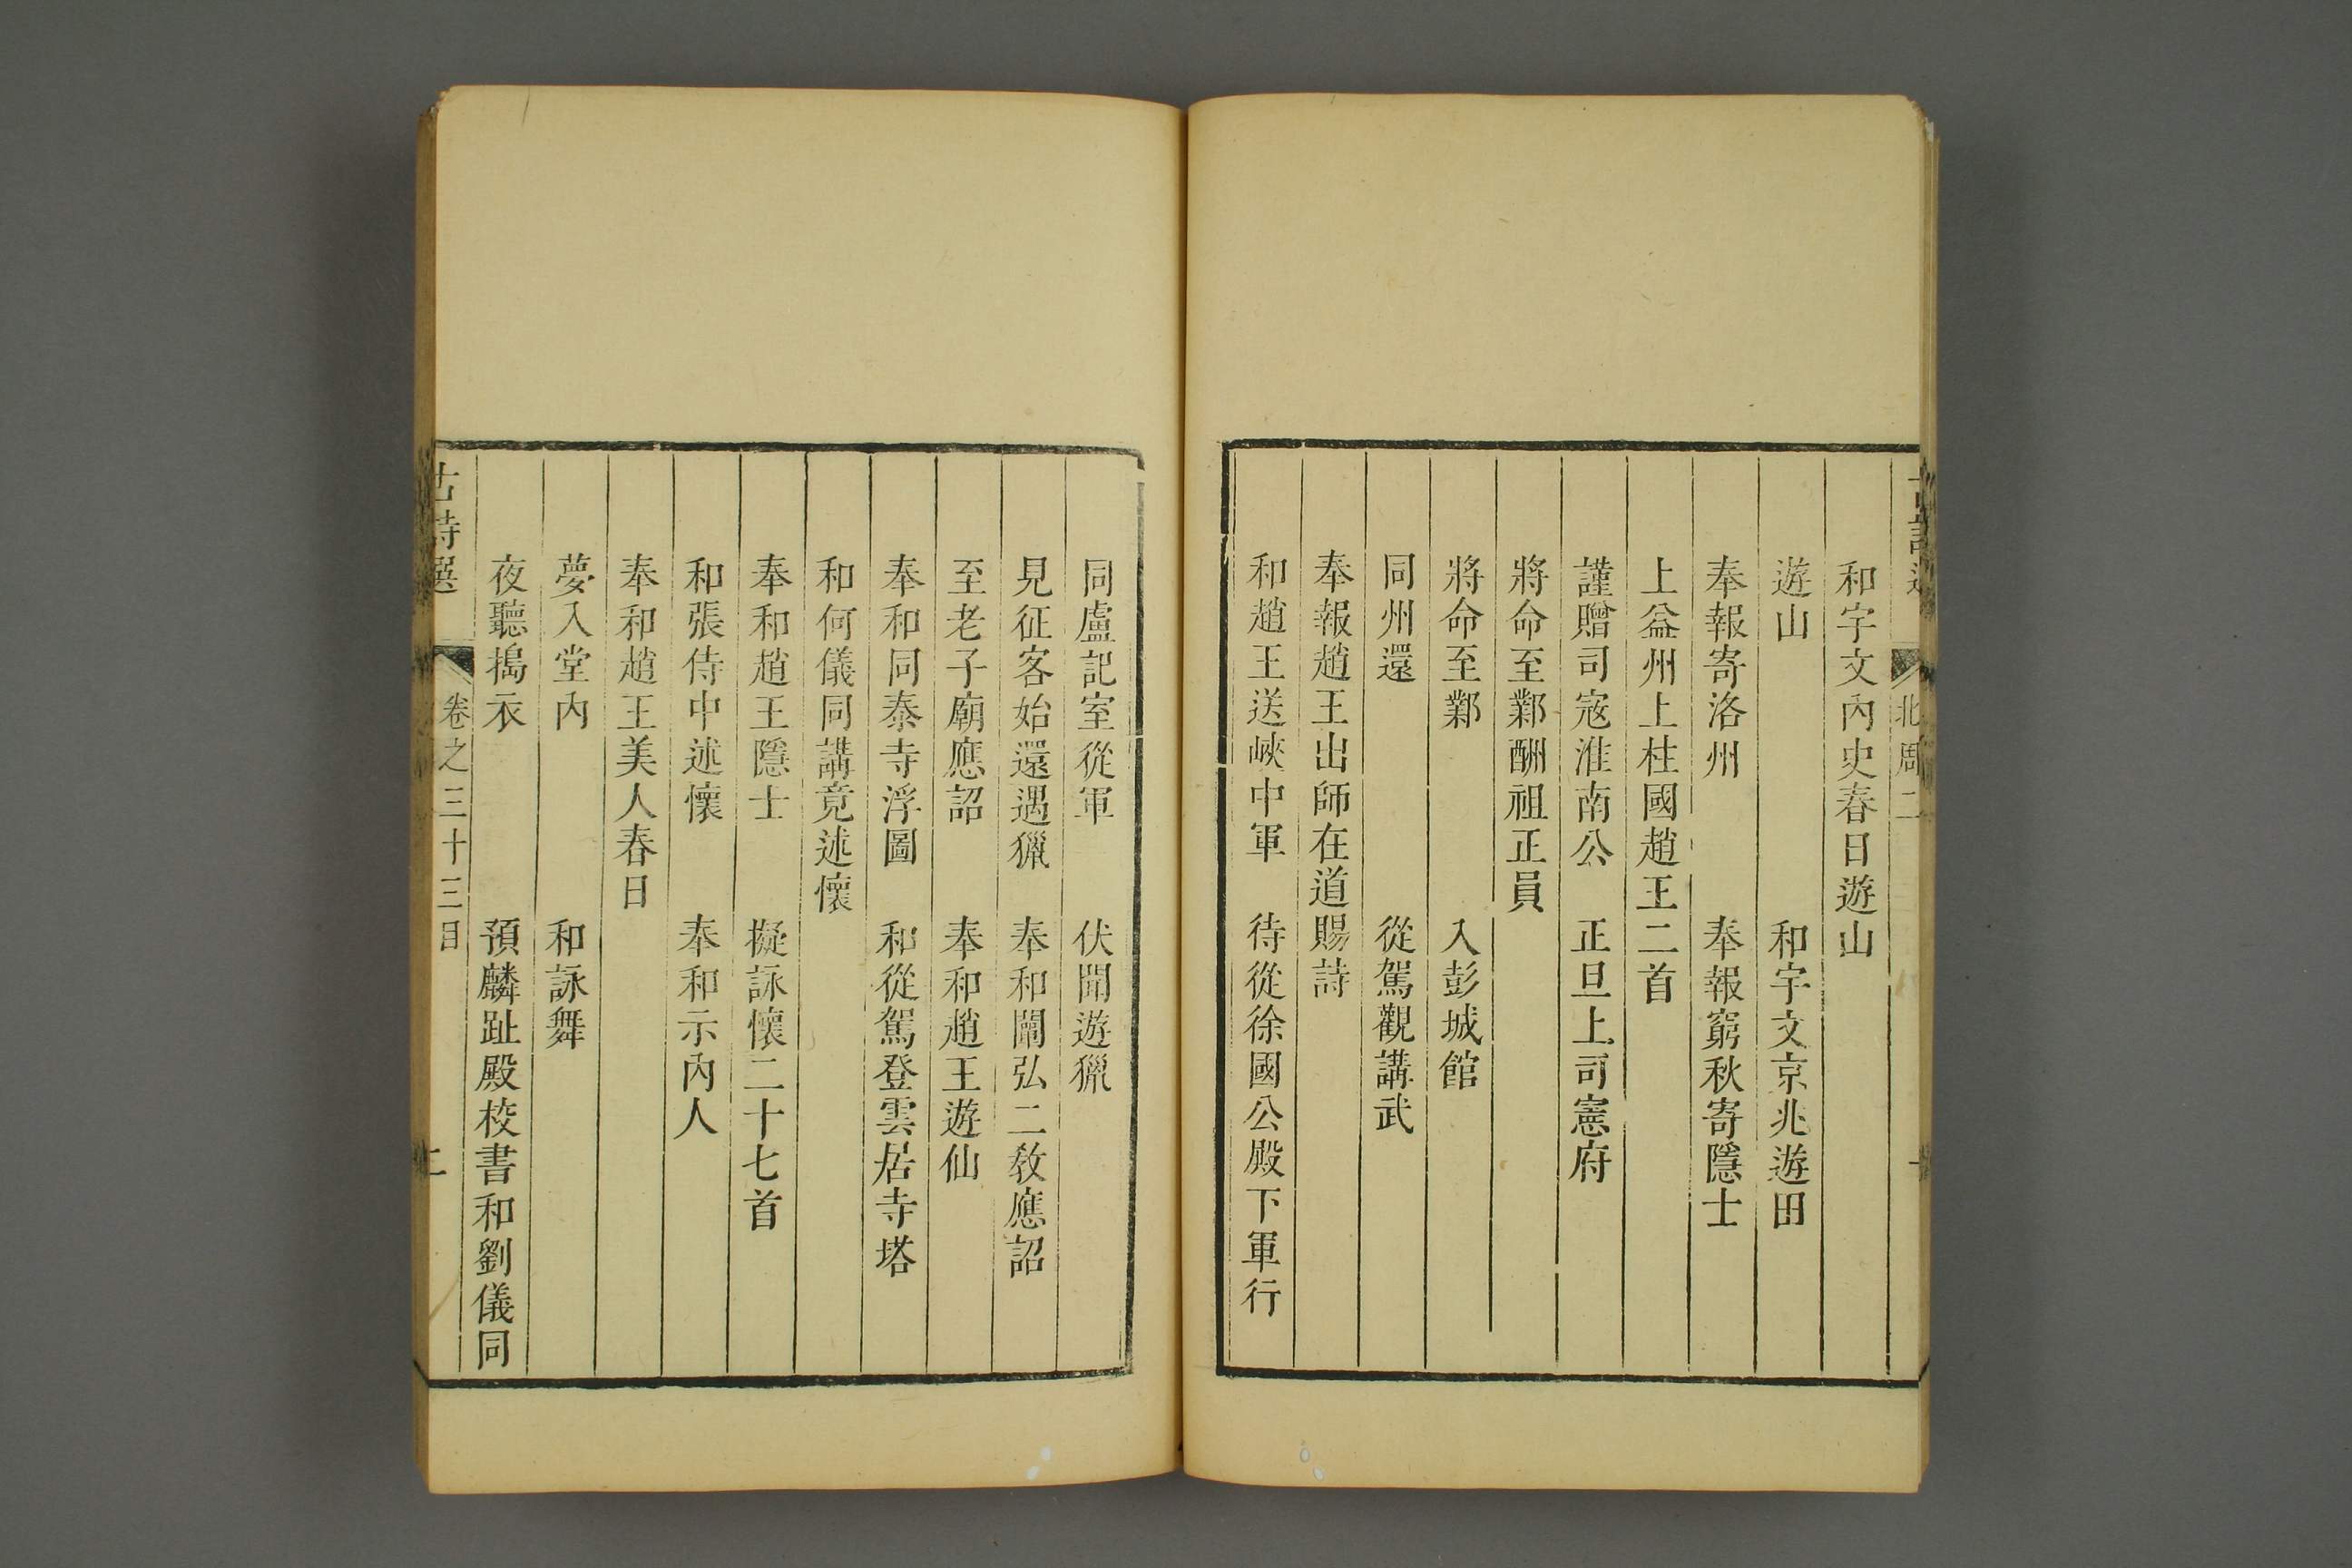 北周二
和宇文內史春日遊山
遊山　和宇文京兆遊田
奉報寄洛州　奉報窮秋寄隱士
上益州上柱國趙王二首
謹贈司寇淮南公　正旦上司憲府
將命至鄴酬祖正員
將命至鄴　入彭城館
同州還　從駕觀講武
奉報趙王出師在道賜詩
和趙王送峽中軍　待從徐國公殿下軍行
同盧記室從軍　伏聞遊獵
見征客始還遇獵　奉和闡弘二教應詔
至老子廟應詔　奉和趙王遊仙
奉和同泰寺浮圖　和從駕登雲居寺塔
和何儀同講竟述懷
奉和趙王隱士　擬詠懷二十七首
和張侍中述懷　奉和示內人
奉和趙王美人春日
夢入堂內　和詠舞
夜聽搗衣　預麟趾殿校書和劉儀同
古詩選　卷之三十三目　二